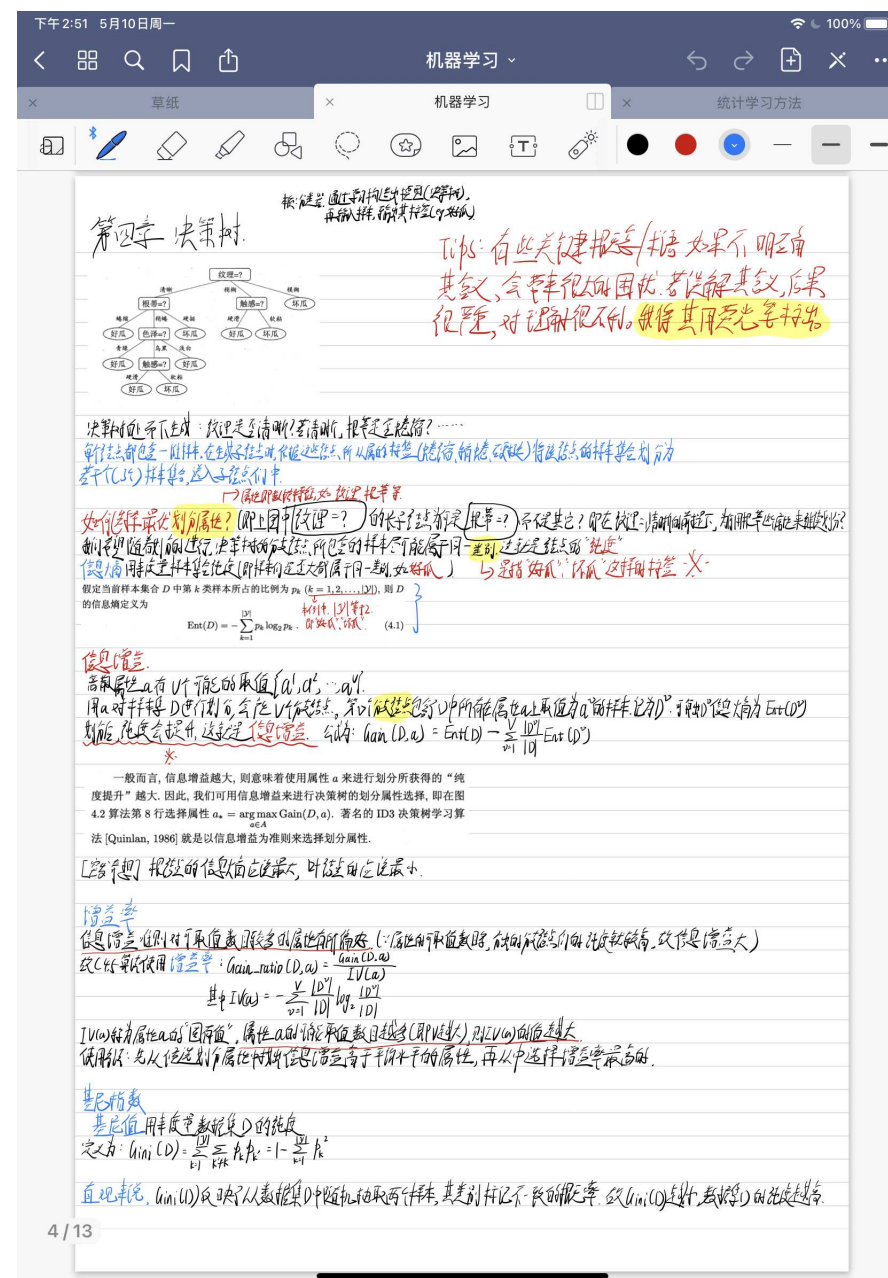 下午2:51 5月10日周一
100%
机器学习
草纸
机器学习
统计学习方法
通过学习构造出模型(决策树),
再输入样本,输出其标签(eg好瓜)
第四章 决策树.
Tips: 有些关键概念/术语 如果不明确
其含义,会带来很大的困扰.若误解其含义,后果
很严重,对理解很不利。我将其用荧光笔标出。
纹理=?
清晰 稍糊 模糊
根蒂=? 触感=? 坏瓜
蜷缩 稍蜷 硬挺 硬滑 软粘
好瓜 色泽=? 坏瓜 好瓜 坏瓜
青绿 乌黑 浅白
好瓜 触感=? 好瓜
硬滑 软粘
好瓜 坏瓜
决策树自上而下生成:纹理是否清晰?若清晰,根蒂是否蜷缩?……
若干个(3个)样本集合,进入子结点们中.
属性即数据特征,如 纹理 根蒂 等
如何选择最优划分属性?(即上图中 纹理=? 的长子结点为何是 根蒂=? 不是其它?
我们希望随着划分的进行,决策树的分支结点所包含的样本尽可能属于同一类别,这就是结点的“纯度”
信息熵 用来度量样本集合纯度(即样本们是否大都属于同一类别,如好瓜)
是指“好瓜”、“坏瓜”这样的标签
假定当前样本集合 D 中第 k 类样本所占的比例为 pₖ (k = 1, 2, . . . , |𝒴|), 则 D
的信息熵定义为
Ent(D) = −∑_{k=1}^{|𝒴|} pₖ log₂ pₖ . (4.1)
即“好瓜”、“坏瓜”
信息增益.
离散属性a有V个可能的取值{a¹,a²,…,aⱽ}.
用a对样本集D进行划分,会产生V个分支结点。第v个分支结点包含了D中所有在属性a上取值为aᵛ的样本.记为Dᵛ.可算出Dᵛ信息熵为Ent(Dᵛ)
划分后,纯度会提升,这就是信息增益. 公式为: Gain (D,a) = Ent(D) − ∑_{v=1}^{V} |Dᵛ|/|D| Ent(Dᵛ)
一般而言, 信息增益越大, 则意味着使用属性 a 来进行划分所获得的“纯
度提升”越大. 因此, 我们可用信息增益来进行决策树的划分属性选择, 即在图
4.2 算法第 8 行选择属性 a∗ = arg max_{a∈A} Gain(D, a). 著名的 ID3 决策树学习算
法 [Quinlan, 1986] 就是以信息增益为准则来选择划分属性.
根结点的信息熵应该最大,叶结点的应该最小.
增益率
信息增益准则对可取值数目较多的属性有所偏好.
故C4.5算法使用增益率:Gain_ratio(D,a) = Gain(D,a)/IV(a)
其中 IV(a) = −∑_{v=1}^{V} |Dᵛ|/|D| log₂ |Dᵛ|/|D|
IV(a)称为属性a的“固有值”,属性a的可能取值数目越多(即V越大),则IV(a)的值越大.
使用时:先从候选划分属性中找出信息增益高于平均水平的属性,再从中选择增益率最高的.
基尼指数
基尼值 用来度量数据集D的纯度
定义为:Gini(D) = ∑_{k=1}^{|𝒴|} ∑_{k'≠k} pₖpₖ' = 1−∑_{k=1}^{|𝒴|} pₖ²
直观来说,Gini(D)反映了从数据集D中随机抽取两个样本,其类别标记不一致的概率.故Gini(D)越小,数据集D的纯度越高.
4 / 13